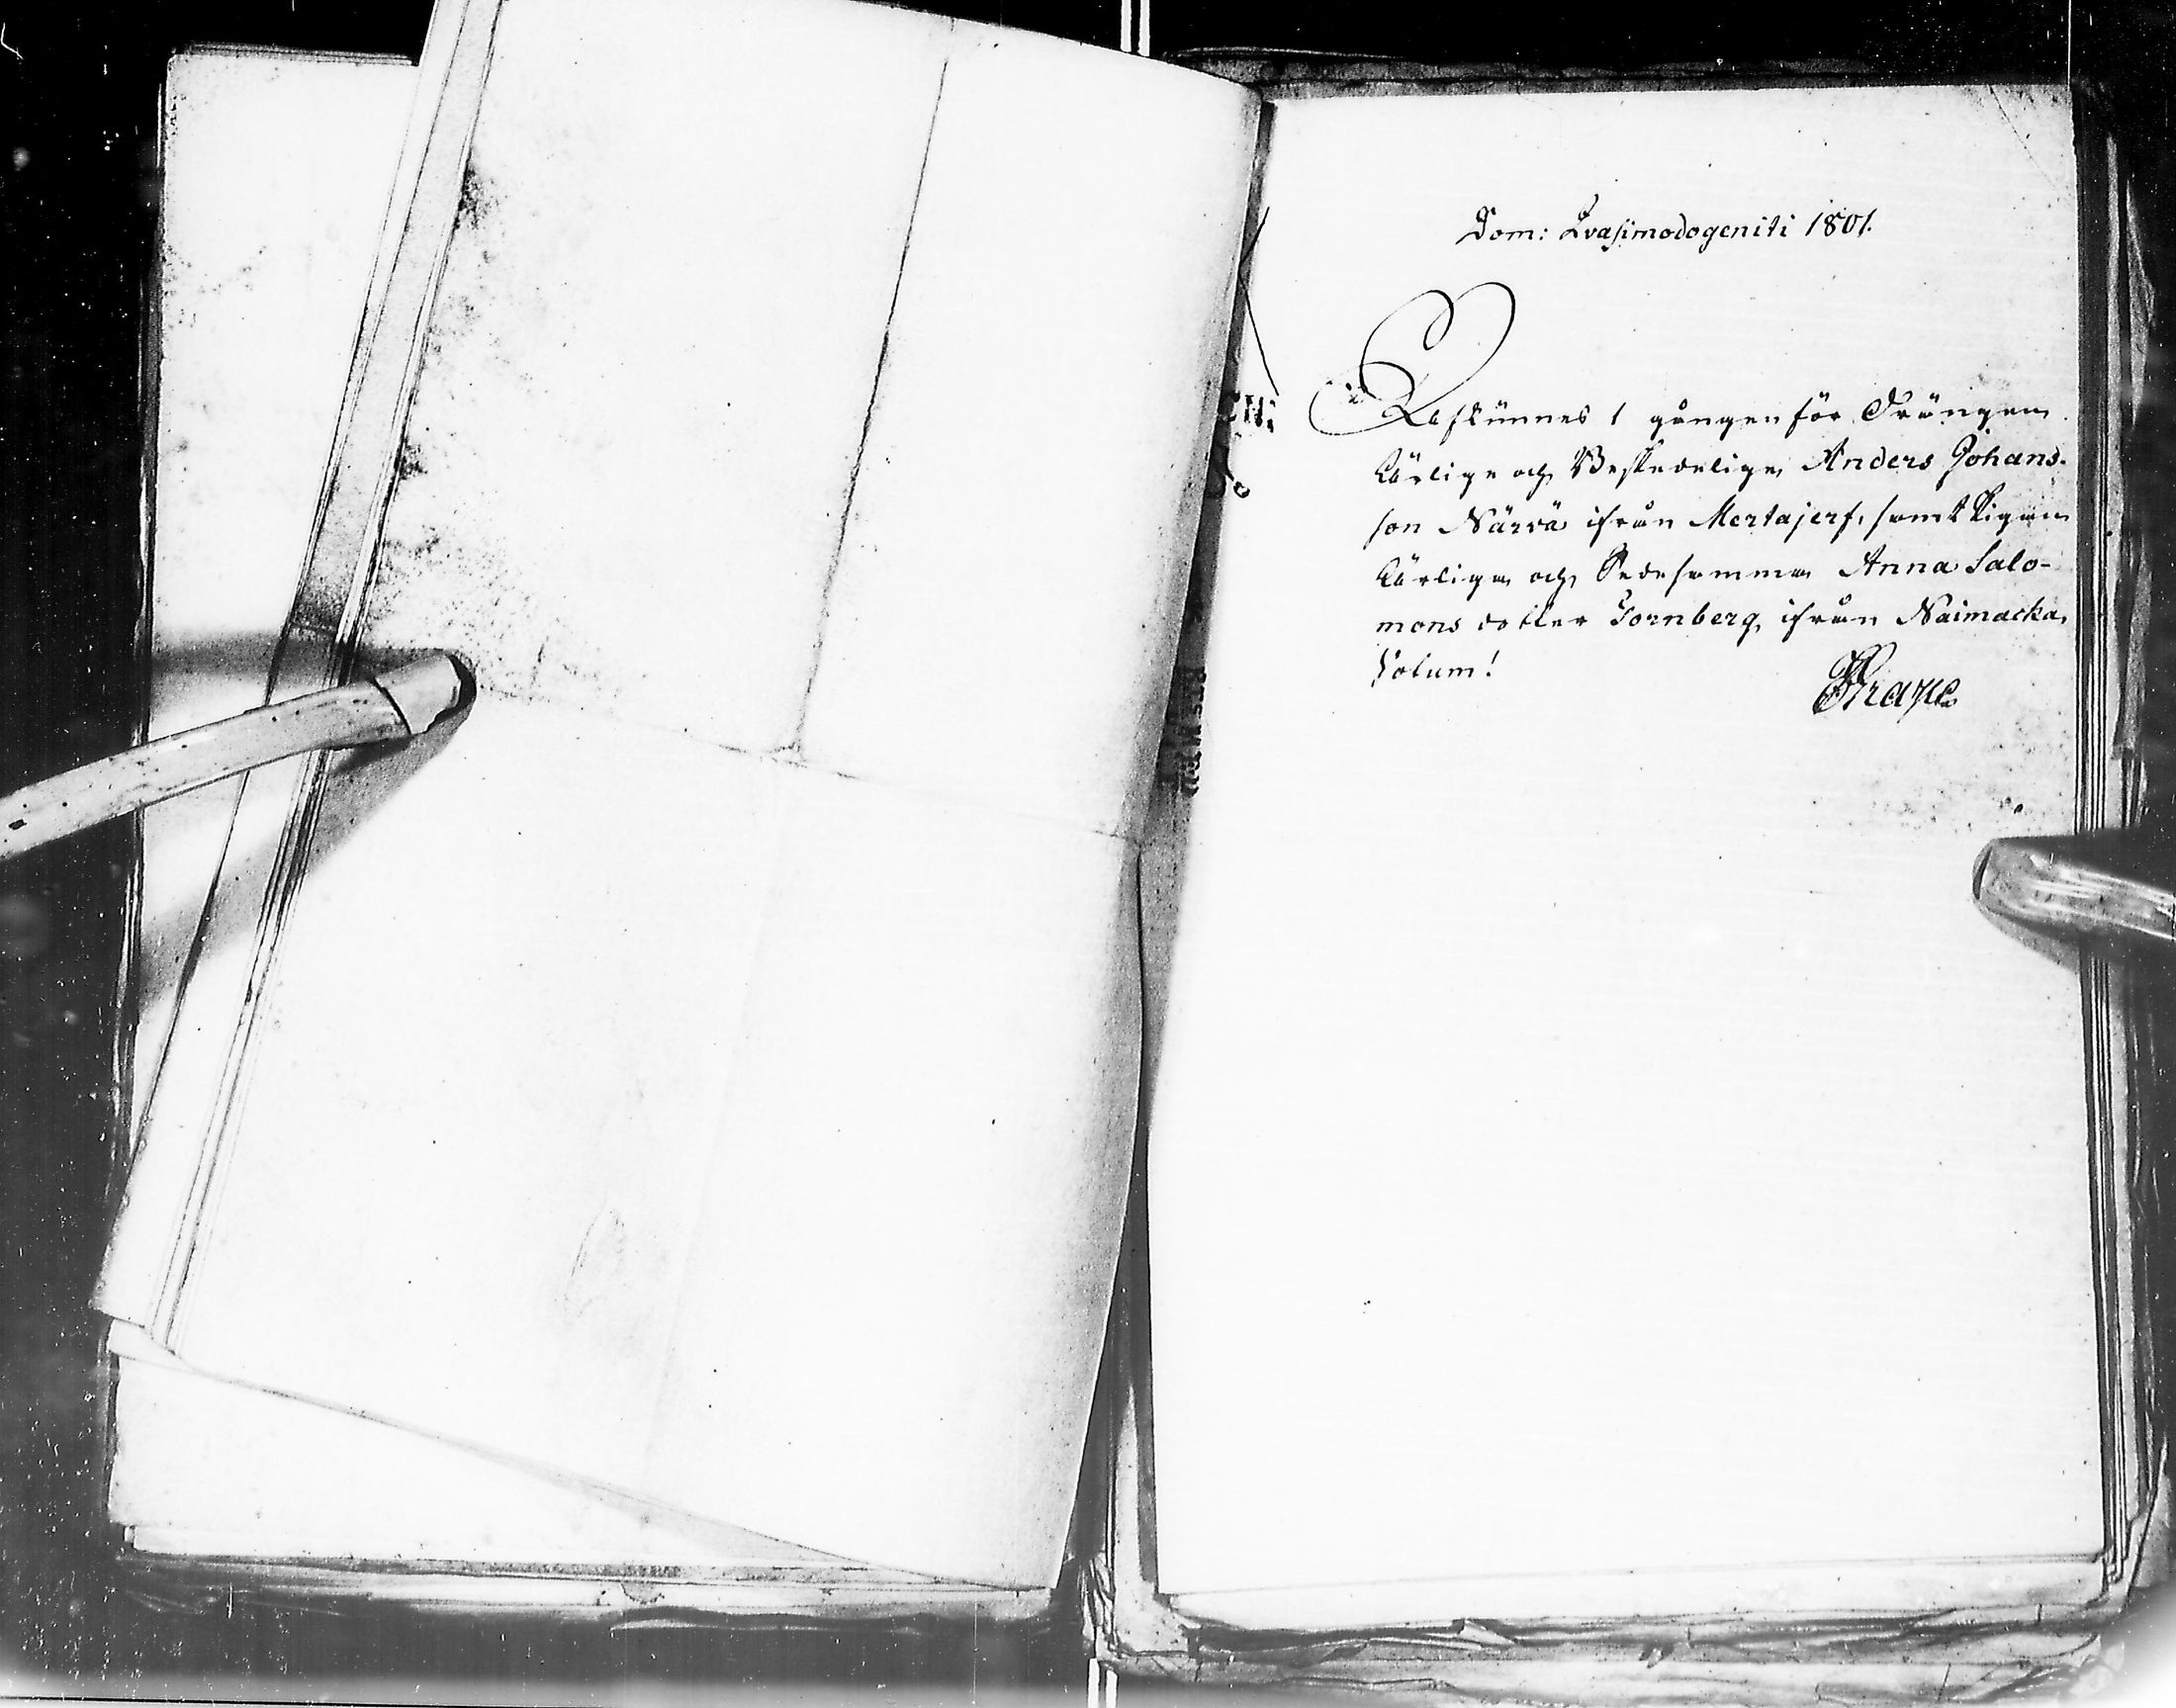 Dom: Qvasimodogeniti 1801.
Afkünnes 1 gången för Drängen
Ärlige och Beskedelige Anders Johans-
son Närvä ifrån Mertajerf, samt Pigan
Ärliga och Sedesamma Anna Salo-
mons dotter Fornberg, ifrån Naimacka,
Votum!